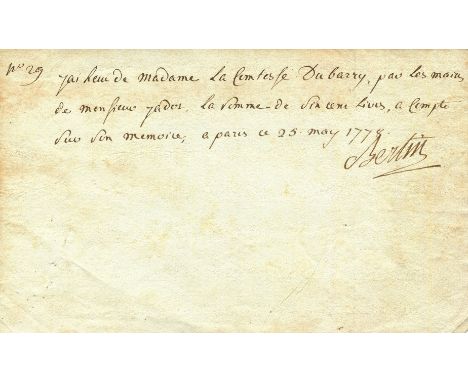 No 29 jai heu de madame La Comtesse Dubarry, par les mains
de monsieur jadot, la somme de sin cent Livres, a Compte
sur son memoire, a paris ce 25 may 1778
Bertin